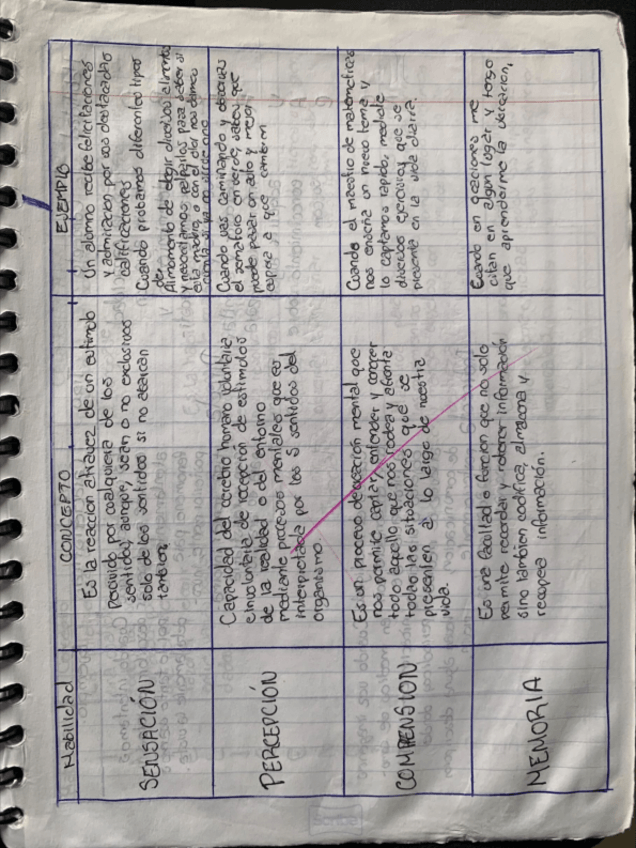 Habilidad
CONCEPTO
EJEMPLO
SENSACIÓN
Es la reacción atravez de un estimulo
percivido por cualquiera de los
sentidos, aunque, sean o no exclusivos
solo de los sentidos si no abarcan
tambien
Un alumno recibe felicitaciones
y admiracion por sus destacadas
calificaciones
Cuando probamos diferentes tipos
de
Al momento de elegir diversos alimentos
y necesitamos
esta
PERCEPCIÓN
Capacidad del cerebro humano voluntaria
e involuntaria de recepción de estimulos
de la realidad o del entorno
mediante procesos mentales que es
interpretada por los 5 sentidos del
organismo.
Cuando vas caminando y observas
el semaforo en verde, sabes que
puede pasar un auto y mejor
espera a que cambien
COMPENSION
Es un proceso de creación mental que
nos permite captar, entender y conocer
todo aquello que nos rodea y afronta
todas las situaciones que se
presenten a lo largo de nuestra
vida.
Cuando el maestro de matematicas
nos enseña un nuevo tema y
lo captamos rapido, mediante
diversos ejercicios que se
presenta en la vida diaria.
MEMORIA
Es una facultad o funcion que no solo
permite recordar y retener información
sino tambien codifica, almacena y
recupera información.
Cuando en ocaciones me
citan en algun lugar y tengo
que aprenderme la ubicacion,